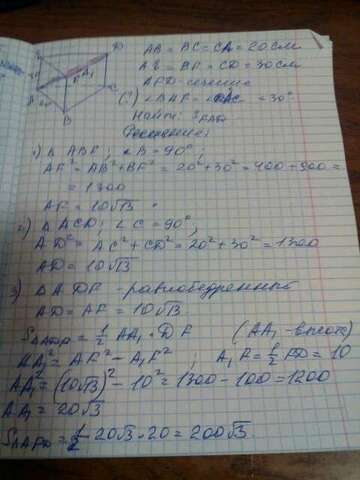 D
A₁
C
A
B
20
AB = BC = CA = 20 см
AE = BF = CD = 30 см
AFD - сечение
= 30°
Найти: S
Решение:
1) Δ ABF; ∠B = 90°;
AF² = AB² + BF² = 20² + 30² = 400 + 900 =
= 1300
AF = 10√13
2) Δ ACD; ∠C = 90°;
AD² = AC² + CD² = 20² + 30² = 1300
AD = 10√13
3) Δ ADF - равнобедренный
AD = AF = 10√13
S = ½ AA₁ · DF (AA₁ - высота)
AA₁² = AF² - A₁F² ; A₁F = ½ FD = 10
AA₁² = (10√13)² - 10² = 1300 - 100 = 1200
AA₁ = 20√3
= ½ · 20√3 · 20 = 200√3.